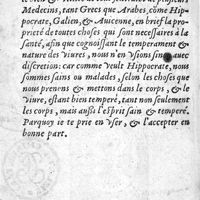 Medecins, tant Grecs que Arabes, cõme Hip
pocrate, Galien, & Auicenne, en brief la pro
prieté de toutes choses qui sont necessaires à la
santé, afin que cognoissant le temperament &
nature des viures, nous n'en vsions sinon auec
discretion: car comme veult Hippocrate, nous
sommes sains ou malades, selon les choses que
nous prenens & mettons dans le corps, & le
viure, estant bien temperé, tant non seulement
les corps, mais aussi l'esprit sain & temperé.
Parquoy ie te prie en vser, & l'accepter en
bonne part.